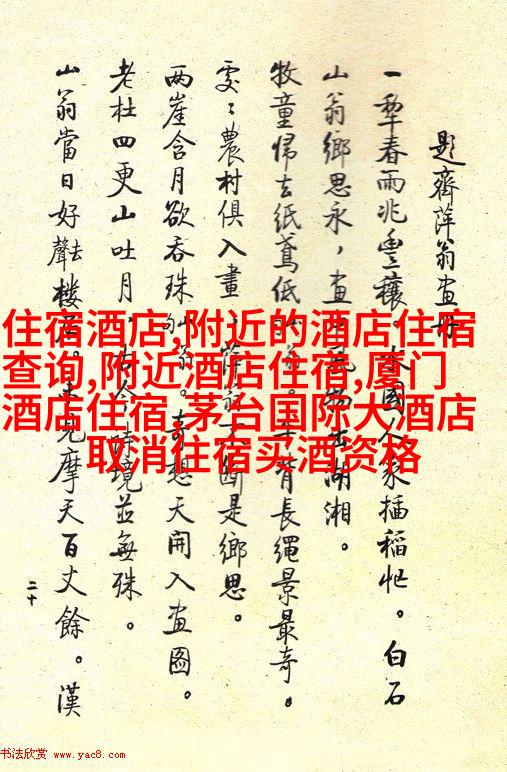 题齊萍翁畫冊
一犂春雨兆豐穰。水國人家插稻忙。白石
山翁鄉思永，畫風物湖湘。
牧童歸去紙鳶低背長繩景最奇。
處〻農村俱入畫萍翁不斷是鄉思。
两崖含月欲吞珠翁。奇想天開入畫圖。
老杜四更山吐月，古今詩境並無殊。
山翁當日好去聲樓居。見摩天百丈餘。漢
二十
住宿酒店,附近的酒店住宿
查询,附近酒店住宿,厦门
酒店住宿,茅台国际大酒店
取消住宿买酒资格
书法欣赏 www.yac8.com